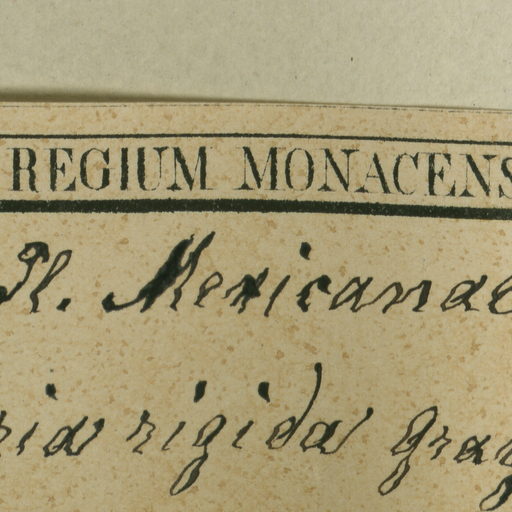 REGIUM MONACENS
Pl. Mexicanae
ria rigida Gray